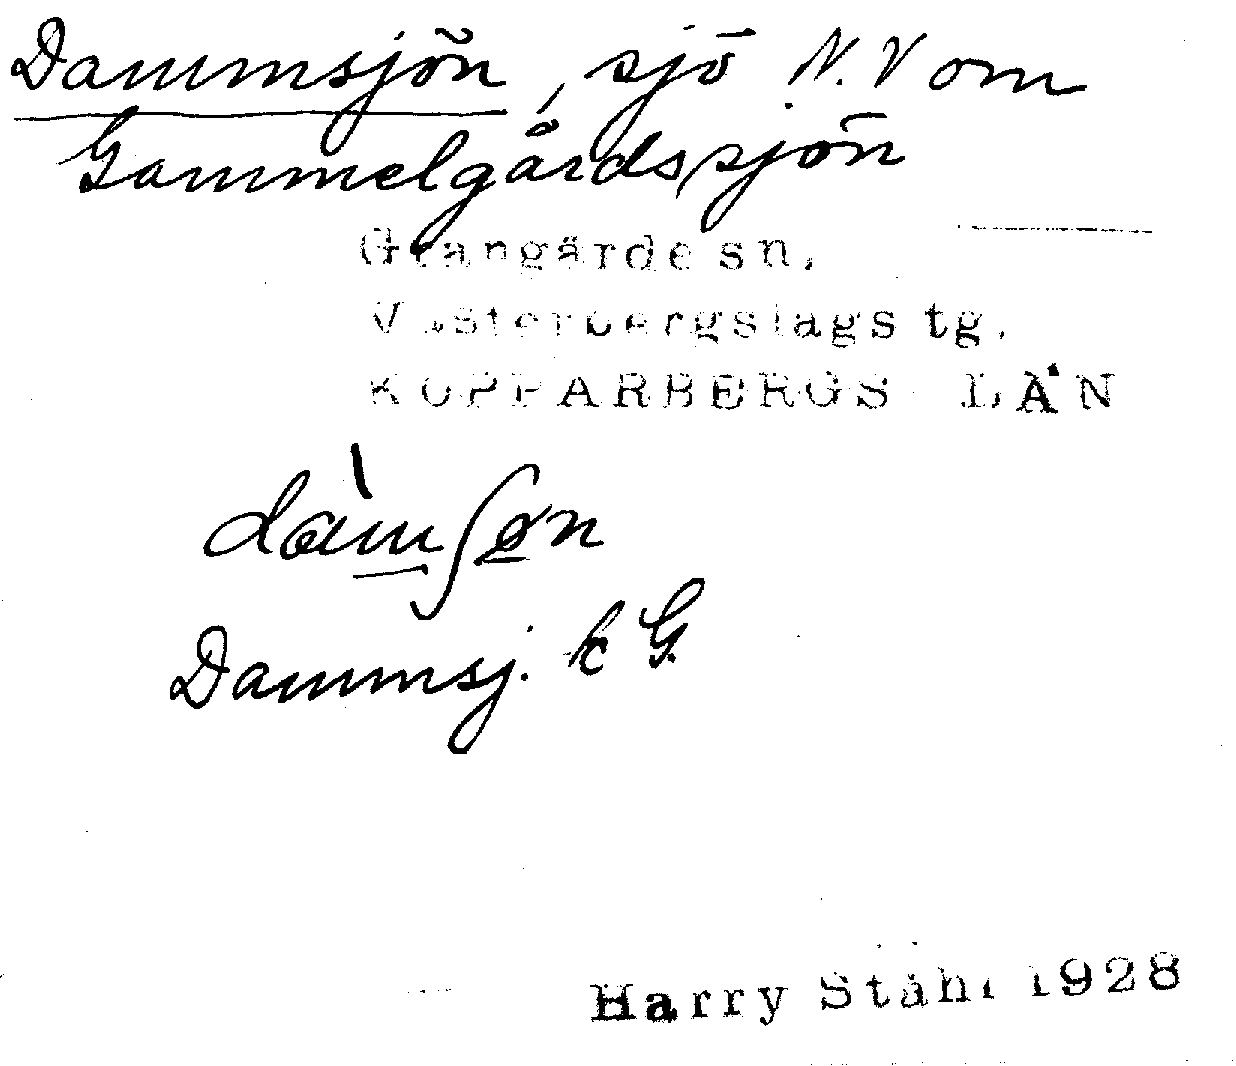 Dammsjön, sjö N.V om
Gammelgårdssjön
Grangärde sn.
Västerbergslags tg.
KOPPARBERGS LÄN
Dammsj. k G.
Harry Ståhl 1928